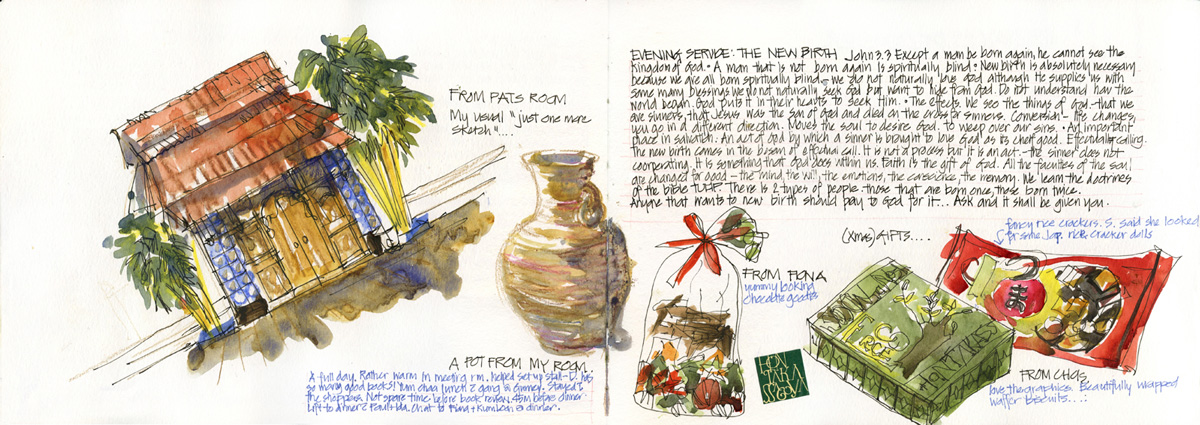 FROM PATS ROOM
My usual "just one more
sketch"....
A POT FROM MY ROOM
A full day. Rather warm in meeting rm. Helped set up stall - D. has
so many good books! Yum cha lunch
the shoppers. Not spare time before book review. 45m before dinner
EVENING SERVICE: THE NEW BIRTH John 3.3 Except a man be born again, he cannot see the
Kingdom of God. • A man that is not born again is spiritually blind • New birth is absolutely necessary
because we are all born spiritually blind – we do not naturally love God although He supplies us with
some many blessings. We do not naturally seek God but want to hide from God. Do not understand how the
world began. God puts it in their hearts to seek Him. • The effects. We see the things of God – that we
are sinners, that Jesus was the son of God and died on the cross for sinners. Conversion – life changes,
you go in a different direction. Moves the soul to desire God, to weep over our sins. • An important
place in salvation. An act of God by which a sinner is brought to love God as its chief good. Effectual calling.
The new birth comes in the bosom of effectual call. It is not a process but it is an act – the sinner does not
cooperating. It is something that God does within us. Faith is the gift of God. All the faculties of the soul
are changed for good – the mind, the will, the emotions, the conscience, the memory. We learn the doctrines
of the bible TULIP. There is 2 types of people those that are born once, those born twice.
Anyone that wants to new birth should pray to God for it... Ask and it shall be given you.
(Xmas) GIFTS....
fancy rice crackers. S. said she looked
for some Jap. rice cracker dolls
FROM FIONA
yummy looking
chocolate goodies
FROM CHRIS
love the graphics. Beautifully wrapped
waffer biscuits...